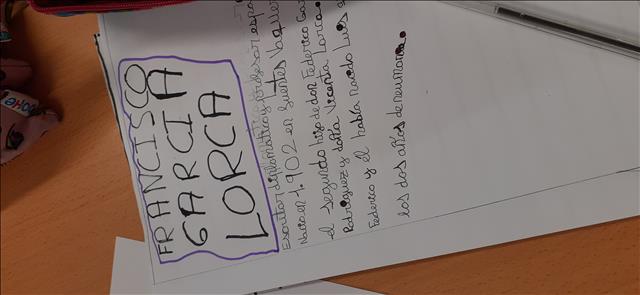 FRANCISCO
GARCIA
LORCA
Escritor diplomático y profesor espa
Nacio en 1.902 en fuentes Vaquer
el segundo hijo de don Federico Gar
Rodríguez y doña Vicenta Lorca.
Federico y el había nacido Luis
los dos años de neumonia.